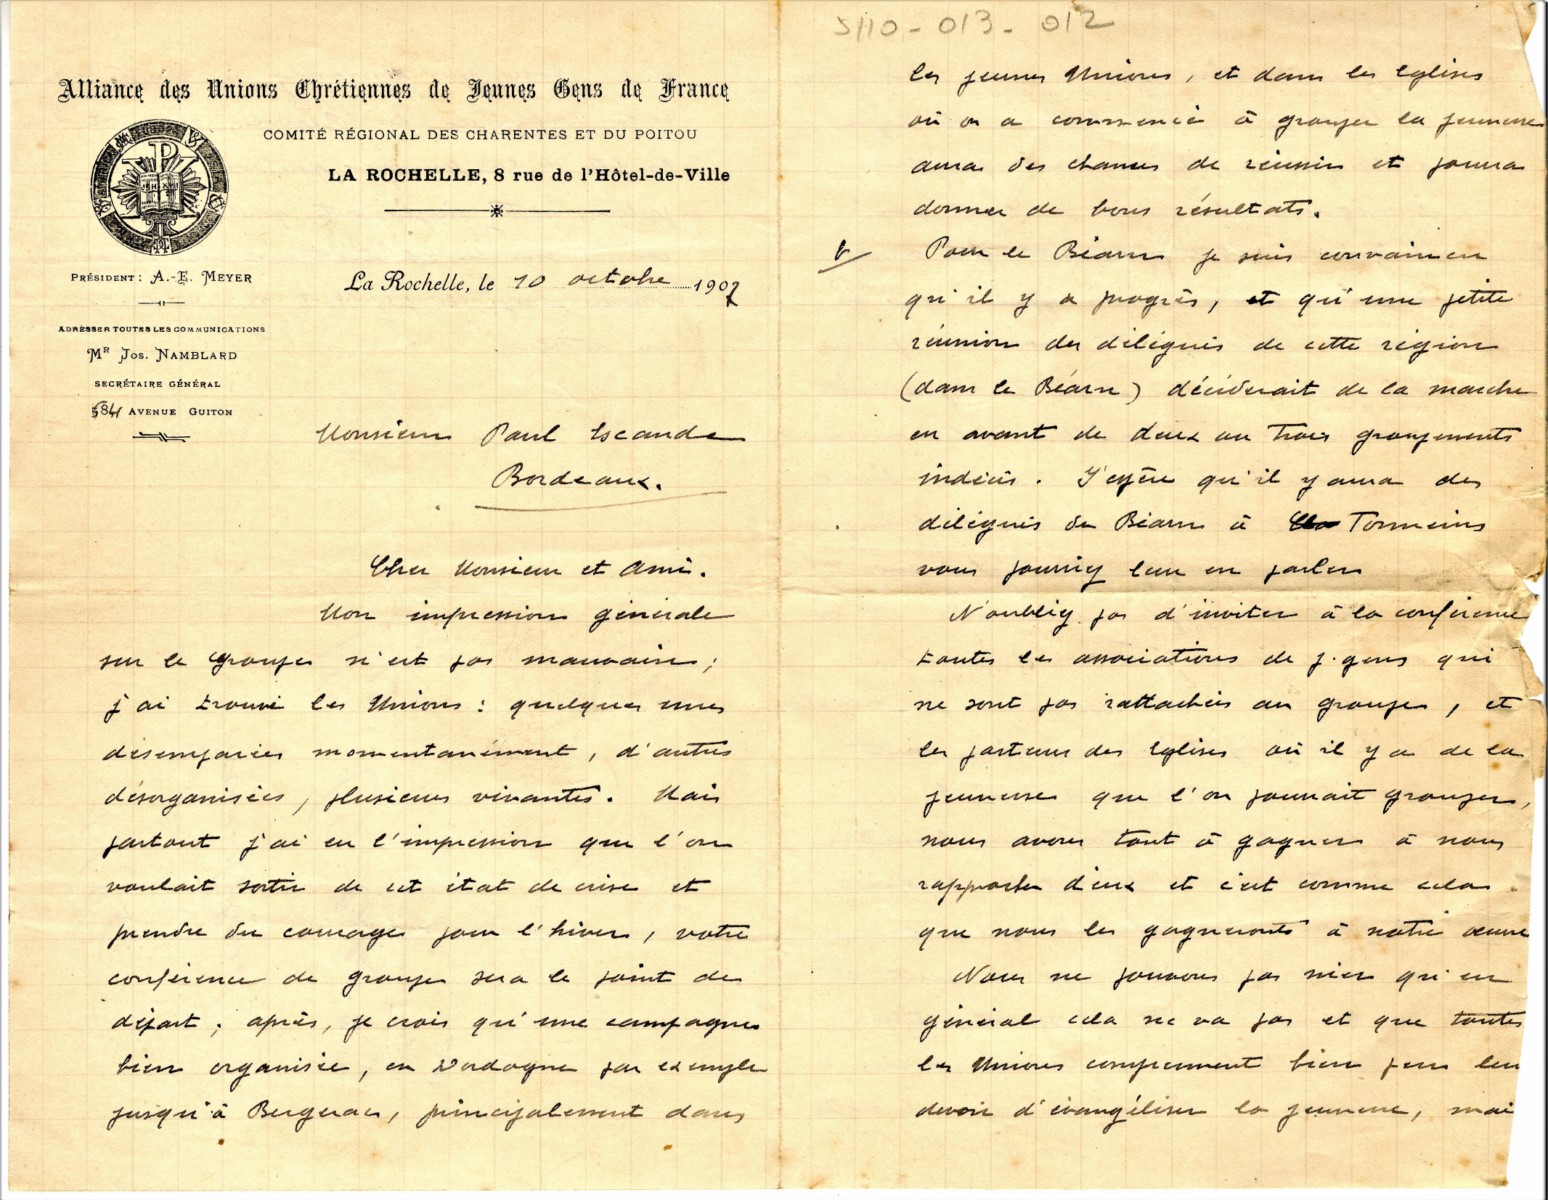 5110-013-012
Alliance des Unions Chrétiennes de Jeunes Gens de France
COMITÉ RÉGIONAL DES CHARENTES ET DU POITOU
LA ROCHELLE, 8 rue de l'Hôtel-de-Ville
PRÉSIDENT : A.-E. MEYER
ADRESSER TOUTES LES COMMUNICATIONS
MR JOS. NAMBLARD
SECRÉTAIRE GÉNÉRAL
84 AVENUE GUITON
La Rochelle, le 10 octobre 1907
Monsieur Paul Escande
Bordeaux.
Cher Monsieur et Ami.
Mon impression générale
sur le groupe n'est pas mauvaise ;
j'ai trouvé les Unions : quelques unes
désemparées momentanément, d'autres
désorganisées, plusieurs vivantes. Mais
partout j'ai eu l'impression que l'on
voulait sortir de cet état de crise et
prendre du courage pour l'hiver, votre
conférence de groupe sera le point de
départ ; après, je crois qu'une campagne
bien organisée, en Dordogne par exemple
jusqu'à Bergerac, principalement dans
les jeunes Unions, et dans les Eglises
où on a commencé à grouper la jeunesse
aura des chances de réussir et pourra
donner de bons résultats.
Pour le Béarn je suis convaincu
qu'il y a progrès, et qu'une petite
réunion des délégués de cette région
(dans le Béarn) déciderait de la marche
en avant de deux ou trois groupements
indécis. J'espère qu'il y aura des
délégués du Béarn à Tonneins
vous pourriez leur en parler
N'oubliez pas d'inviter à la conférence
toutes les associations de j. gens qui
ne sont pas rattachées au groupe, et
les pasteurs des Eglises où il y a de la
jeunesse que l'on pourrait grouper,
nous avons tout à gagner à nous
rapprocher d'eux et c'est comme cela
que nous les gagnerons à notre œuvre
Nous ne pouvons pas nier qu'en
général cela ne va pas et que toutes
les Unions comprennent bien peu leur
devoir d'évangéliser la jeunesse, mais